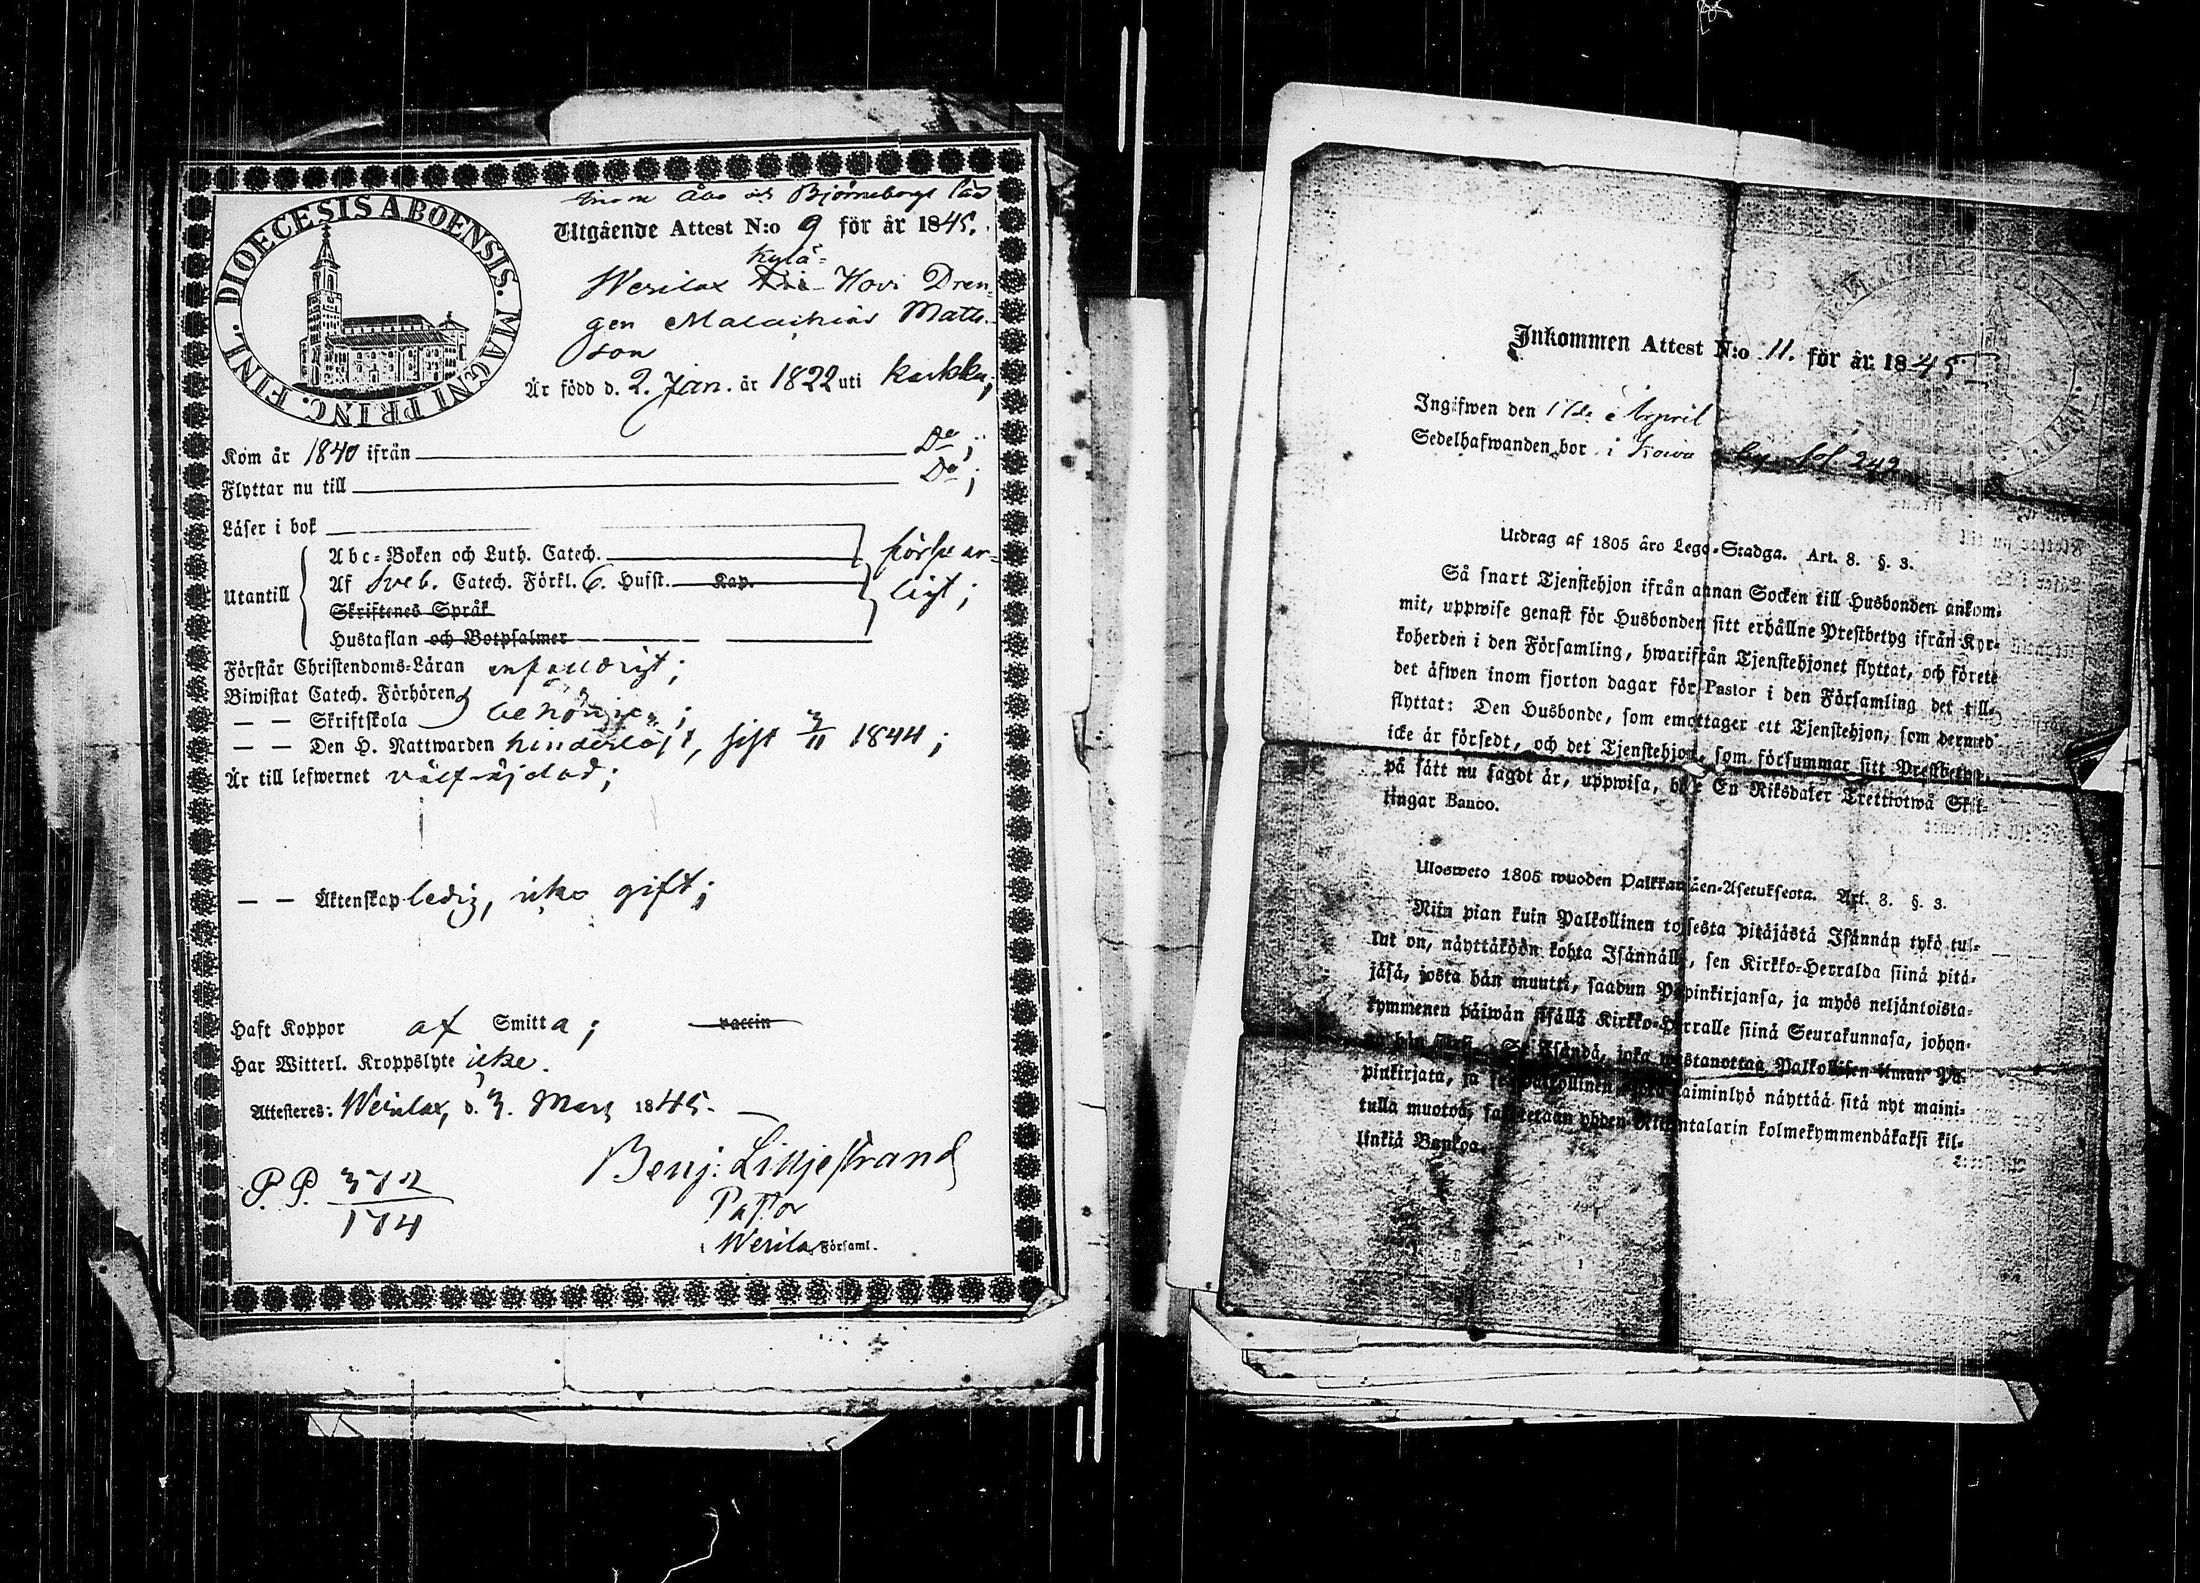 DIOECESIS ABOENSIS. MAGNI PRINC. FINL.
inom Åbo och Björneborgs län
Utgående Attest N:o 9 för år 1845.
Kylä-
Wesilax Hovi Dren-
gen Malachias Matts-
son
Är född d. 2. Jan. år 1822 uti Karkku;
Kom år 1840 ifrån Do;
Flyttar nu till Do;
Läser i bok
Abc-Boken och Luth. Catech. försvar-
Utantill Af Sveb. Catech. Förkl. 6. Hufst. Kap. ligt;
Skriftenes Språk
Hustaflan och Botpsalmer
Förstår Christendoms-Läran enfaldigt;
Biwistat Catech. Förhören
— — Skriftskola behörigen;
— — Den H. Nattwarden hinderlöst, sist 3/11 1844;
Är till lefwernet wälfrejdad;
— — Äktenskap ledig, icke gift;
Haft Koppor af Smitta; vaccin
Har Witterl. Kroppslyte icke.
Attesteres: Wesilax, d. 3. Mars 1845.
Benj: Liljestrand
P.P. 372/174
Pastor
i Wesilax Församl.
Inkommen Attest N:o 11. för år 1845
Ingifwen den 17de April
Sedelhafwanden bor i by fol 242
Utdrag af 1805 års Lego-Stadga. Art. 8. §. 3.
Så snart Tjenstehjon ifrån annan Socken till Husbonden ankom-
mit, uppwise genast för Husbonden sitt erhållne Prestbetyg ifrån Kyr-
koherden i den Församling, hwarifrån Tjenstehjonet flyttat, och förete
det äfwen inom fjorton dagar för Pastor i den Församling det till-
flyttat: Den Husbonde, som emottager ett Tjenstehjon, som dermed
icke är försedt, och det Tjenstehjon, som försummar sitt Prestbetyg,
på sätt nu sagdt är, uppwisa, böte En Riksdaler Trettiotwå Skil-
lingar Banco.
Ulosweto 1805 wuoden Palkkawäen-Asetuksesta. Art. 8. §. 3.
Niin pian kuin Palkollinen toisesta pitäjästä Isännän tykö tul-
lut on, näyttäköön kohta Isännälle, sen Kirkko-Herralda siinä pitä-
jäsä, josta hän muutti, saadun Papinkirjansa, ja myös neljäntoista-
kymmenen päiwän sisällä Kirkko-Herralle siinä Seurakunnasa, johon-
ka hän tuli. Se Isändä, joka wastanottaa Palkollisen ilman Pa-
pinkirjata, ja se Palkollinen joka laiminlyö näyttää sitä nyt maini-
tulla muotoa, sakotetaan yhden Riikintalarin kolmekymmendäkaksi kil-
linkiä Bankoa.